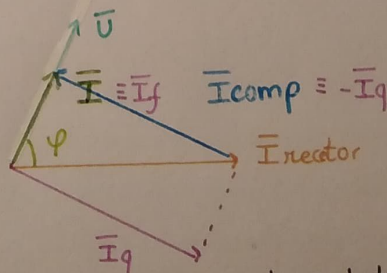 U̅
I̅ ≡ I̅f   I̅comp ≡ -I̅q
φ   I̅reator
I̅q